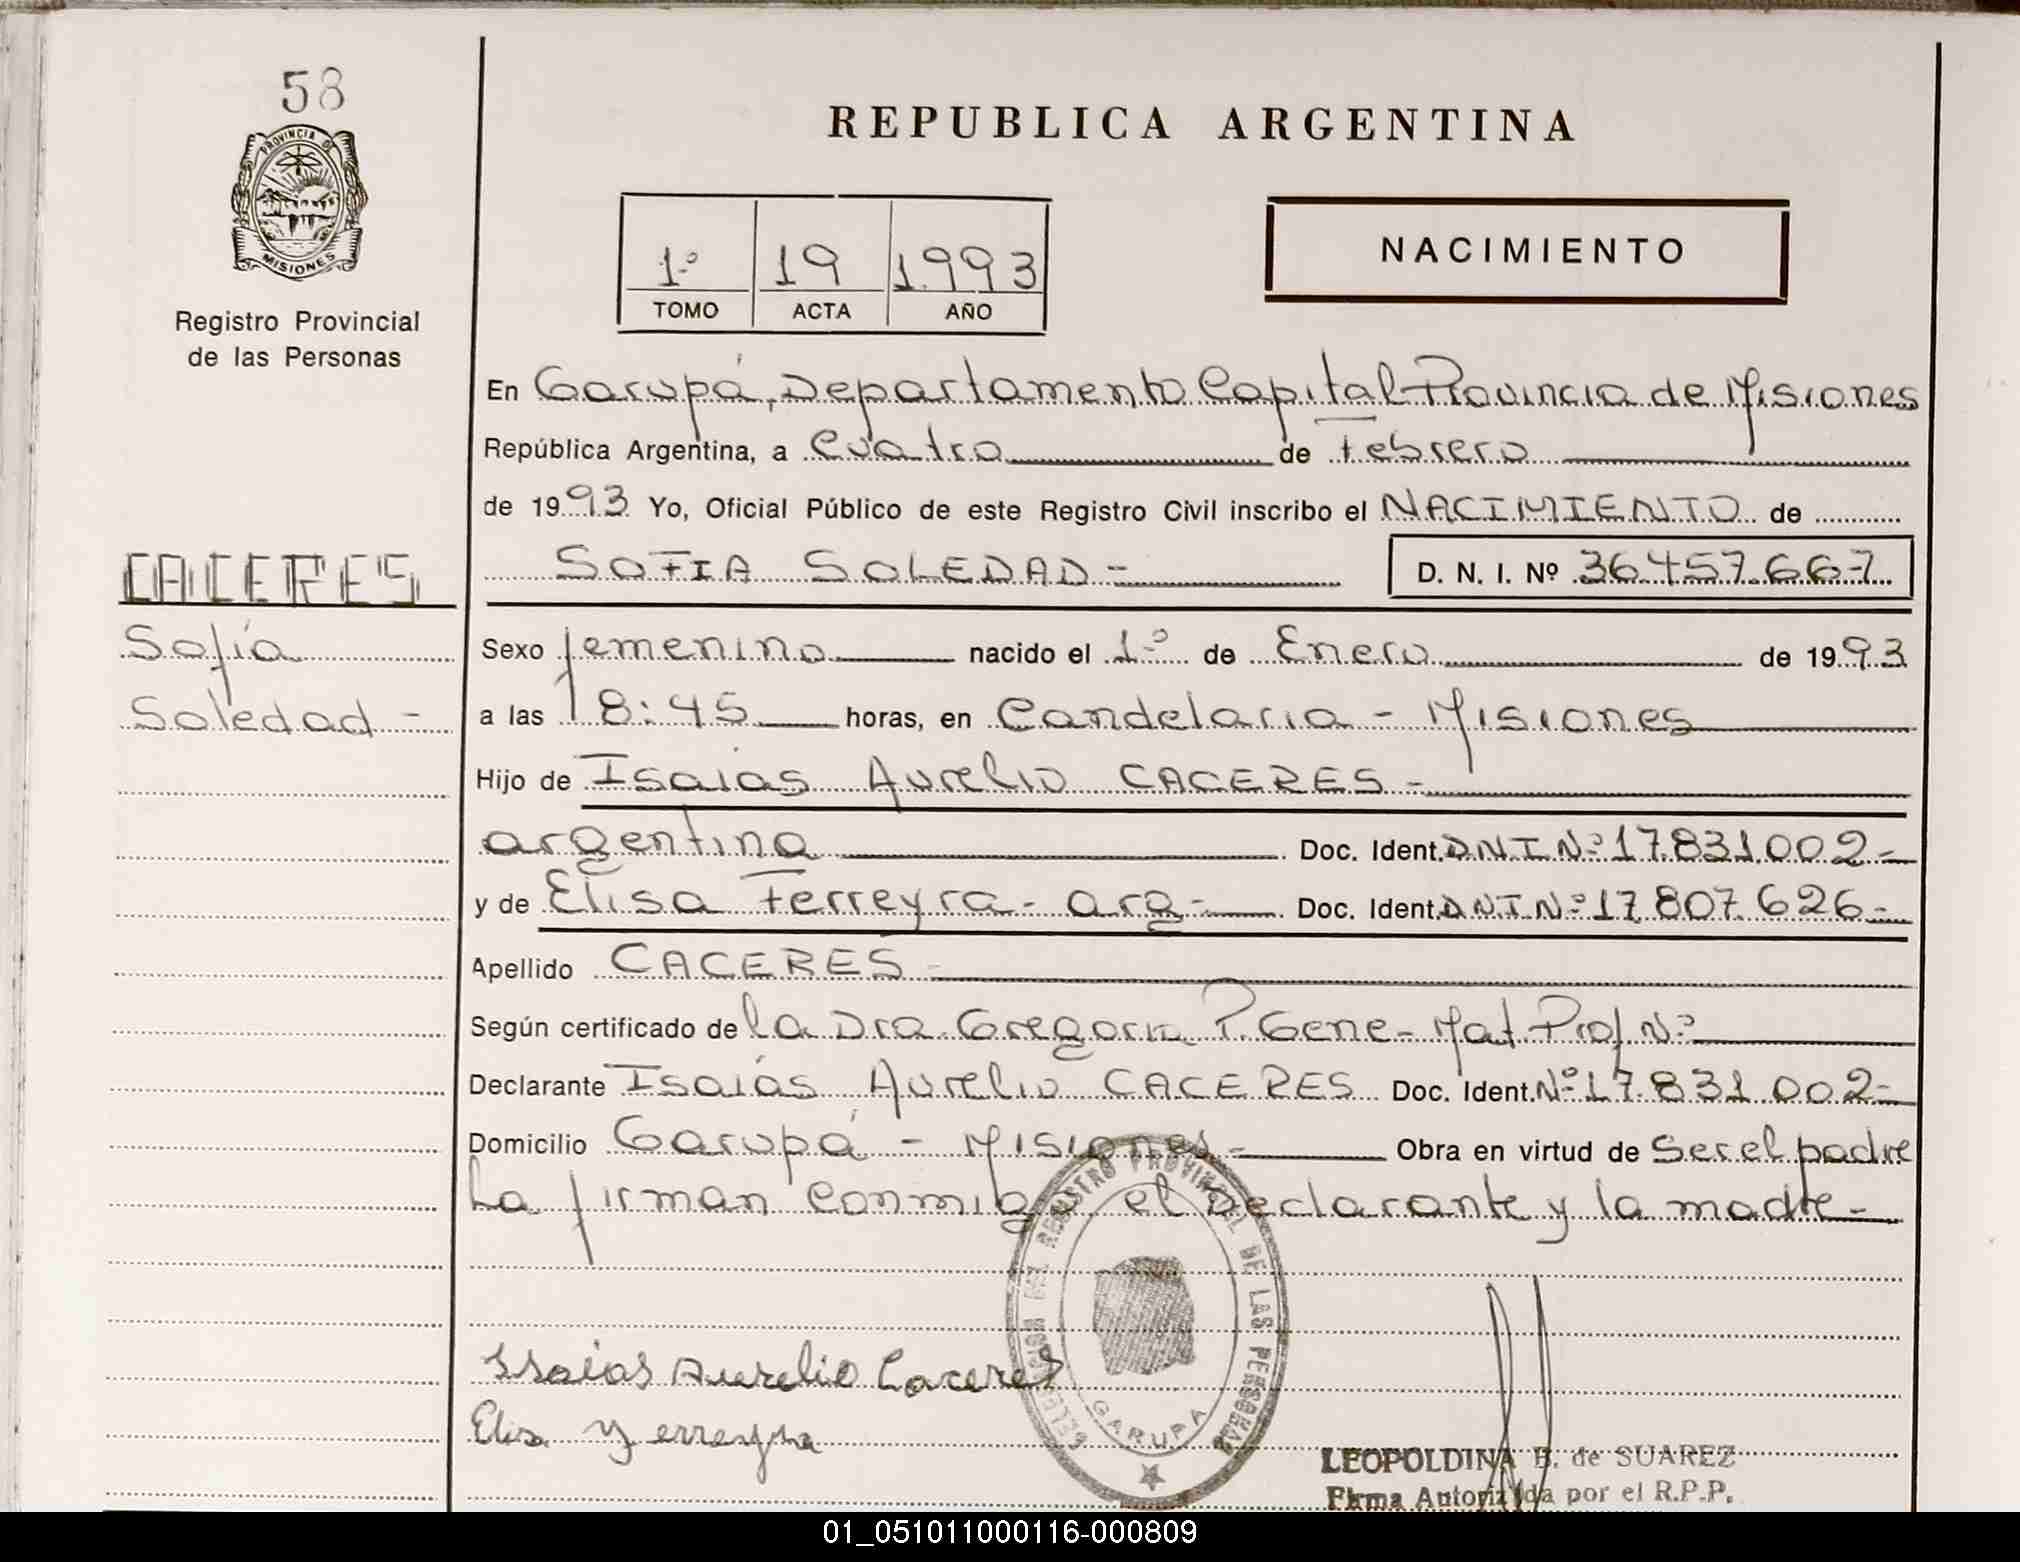 58
PROVINCIA DE
MISIONES
Registro Provincial
de las Personas
CACERES
Sofía
Soledad -
REPUBLICA ARGENTINA
1º 19 1.993
TOMO ACTA AÑO
NACIMIENTO
En Garupá, Departamento Capital Provincia de Misiones
República Argentina, a Cuatro de Febrero
de 1993 Yo, Oficial Público de este Registro Civil inscribo el NACIMIENTO de
SOFIA SOLEDAD - D. N. I. Nº 36.457.667
Sexo femenino nacido el 1º de Enero de 1993
a las 18:45 horas, en Candelaria - Misiones
Hijo de Isaias Aurelio CACERES -
argentina Doc. Ident. DNI Nº 17.831.002-
y de Elisa Ferreyra - arg - Doc. Ident. DNI Nº 17.807.626-
Apellido CACERES -
Según certificado de la Dra. Gregoria P. Gene - Mat. Prof Nº
Declarante Isaiás Aurelio CACERES Doc. Ident. Nº 17.831.002-
Domicilio Garupá - Misiones - Obra en virtud de Ser el padre
La firman conmigo el Declarante y la madre -
Isaias Aurelio Caceres
Elisa Ferreyra
DELEGACION DEL REGISTRO PROVINCIAL DE LAS PERSONAS
GARUPA
LEOPOLDINA B. de SUAREZ
Firma Autorizada por el R.P.P.
01_051011000116-000809